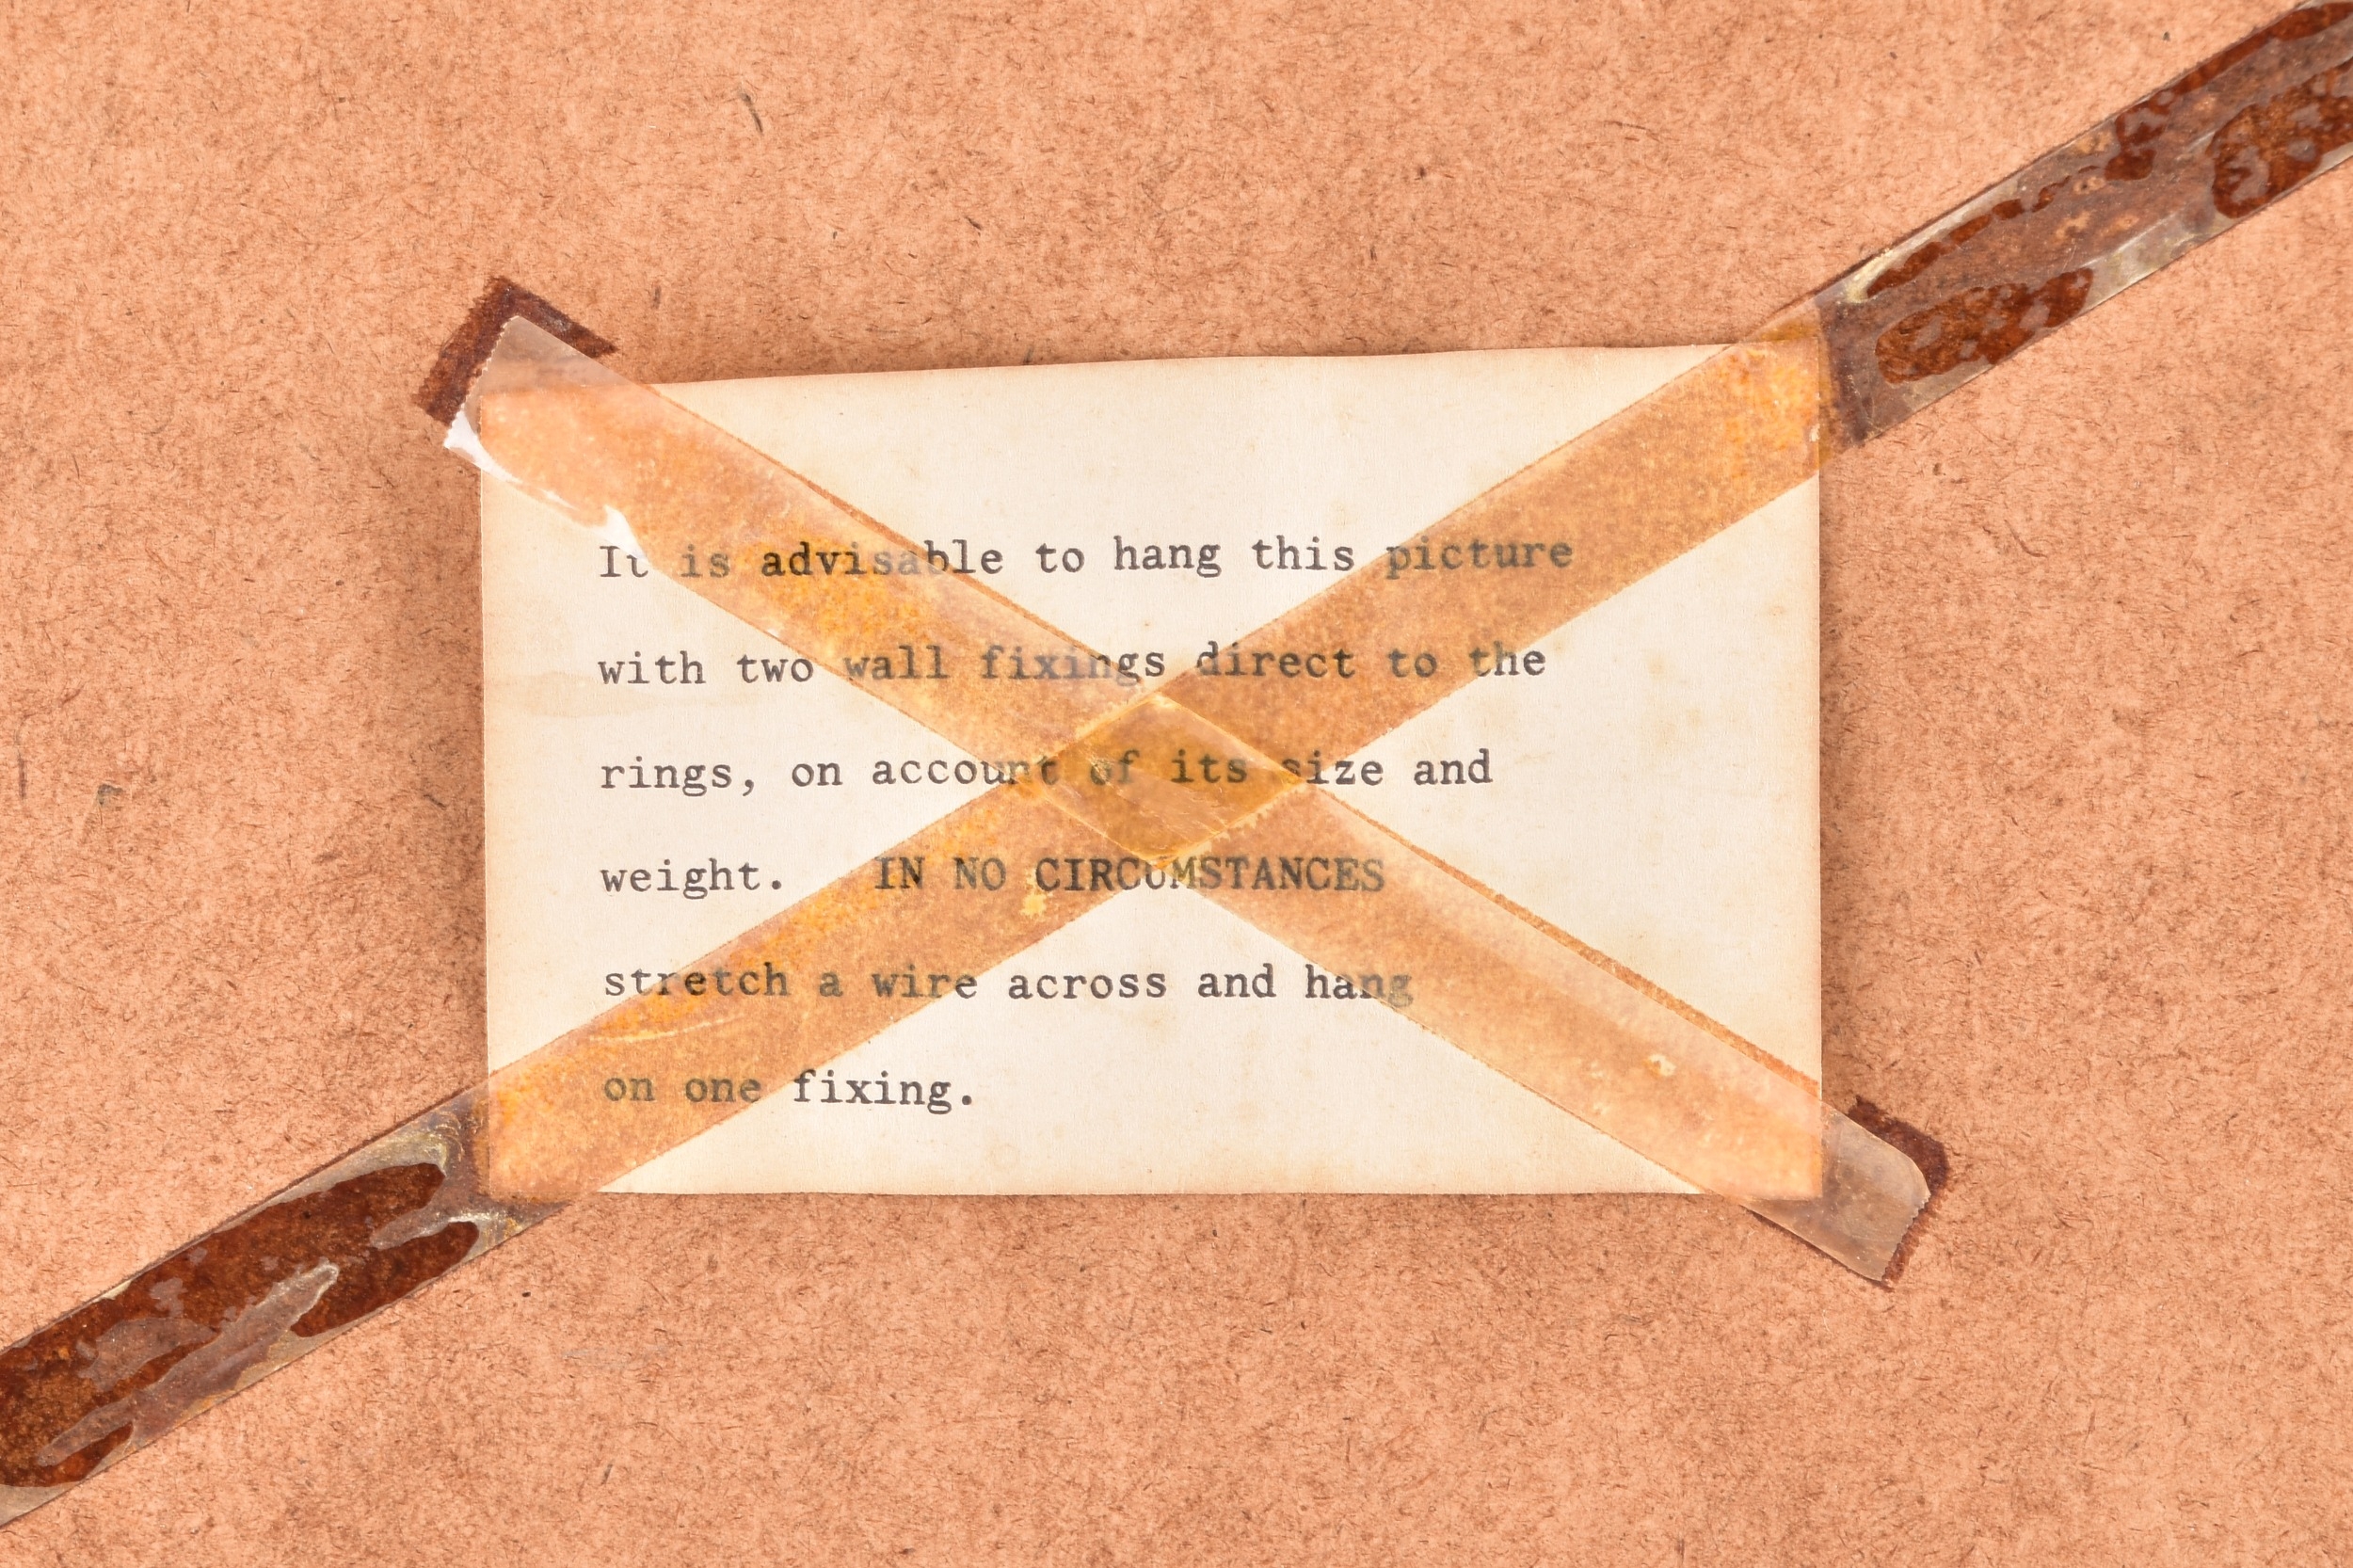 It is advisable to hang this picture
with two wall fixings direct to the
rings, on account of its size and
weight.   IN NO CIRCUMSTANCES
stretch a wire across and hang
on one fixing.